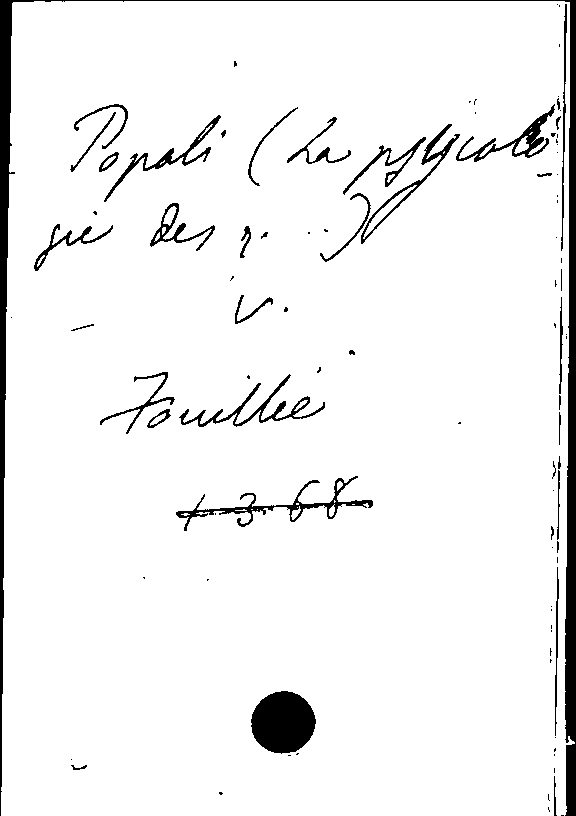 Popoli (La psycolo
gie des p. ...)
v.
Fouillée
1368